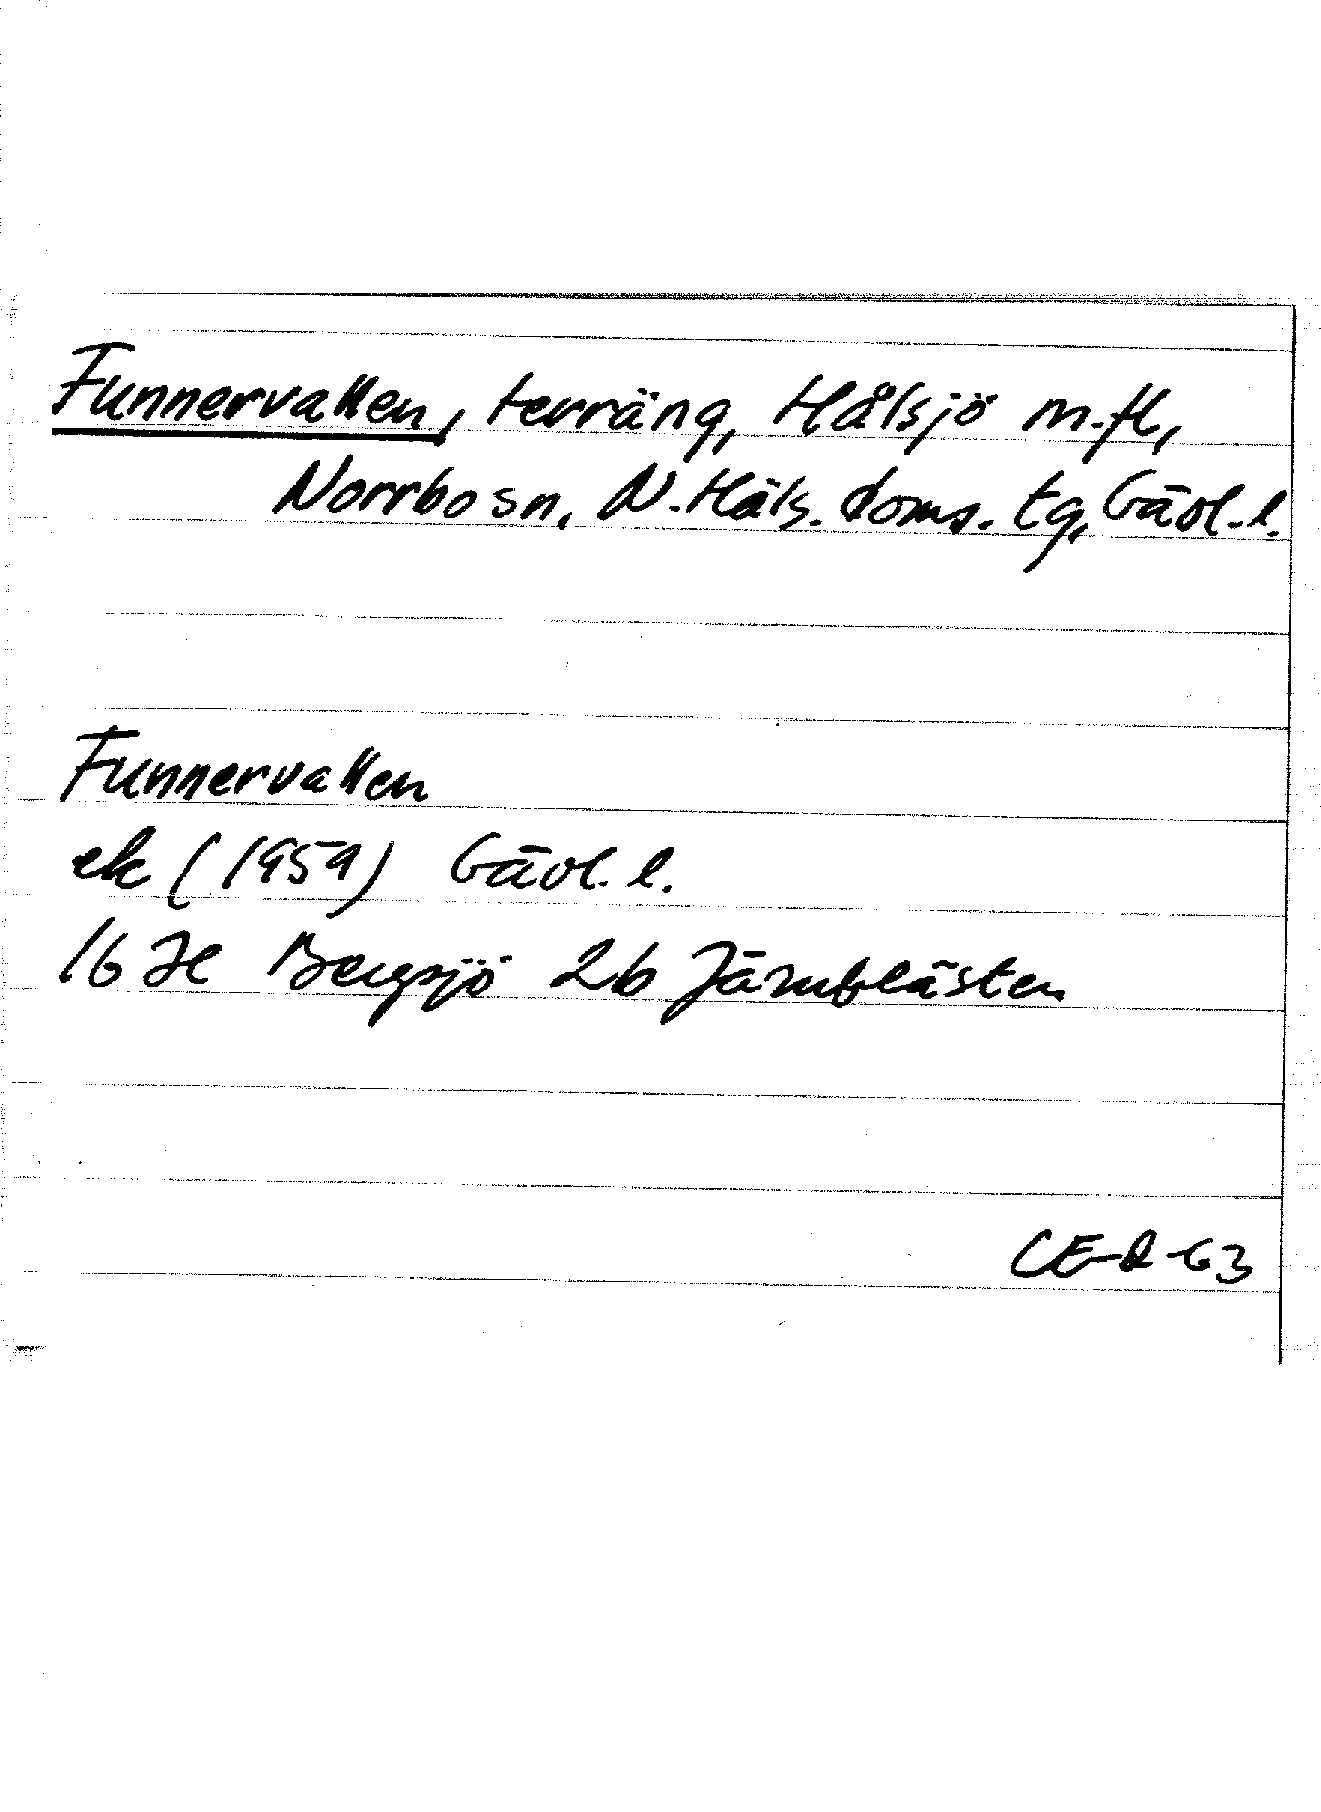 Funnervallen, terräng, Hålsjö m.fl,
Norrbo sn, N. Häls. doms. tg, Gävl. l.
Funnervallen
ek (1959) Gävl. l.
16 H Bergsjö 2b Järnblästen
CE-R-63